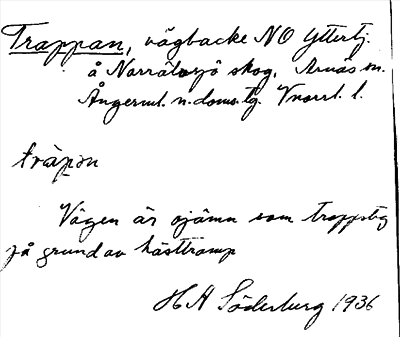 Trappan, vägbacke NO Yttertj.
å Norrätersjö skog, Arnäs sn.
Ångerml. n. doms.tg. Vnorrl. l.
tràpɔn
Vägen är ojämn som trappsteg
på grund av hästtramp
H A Söderberg 1936